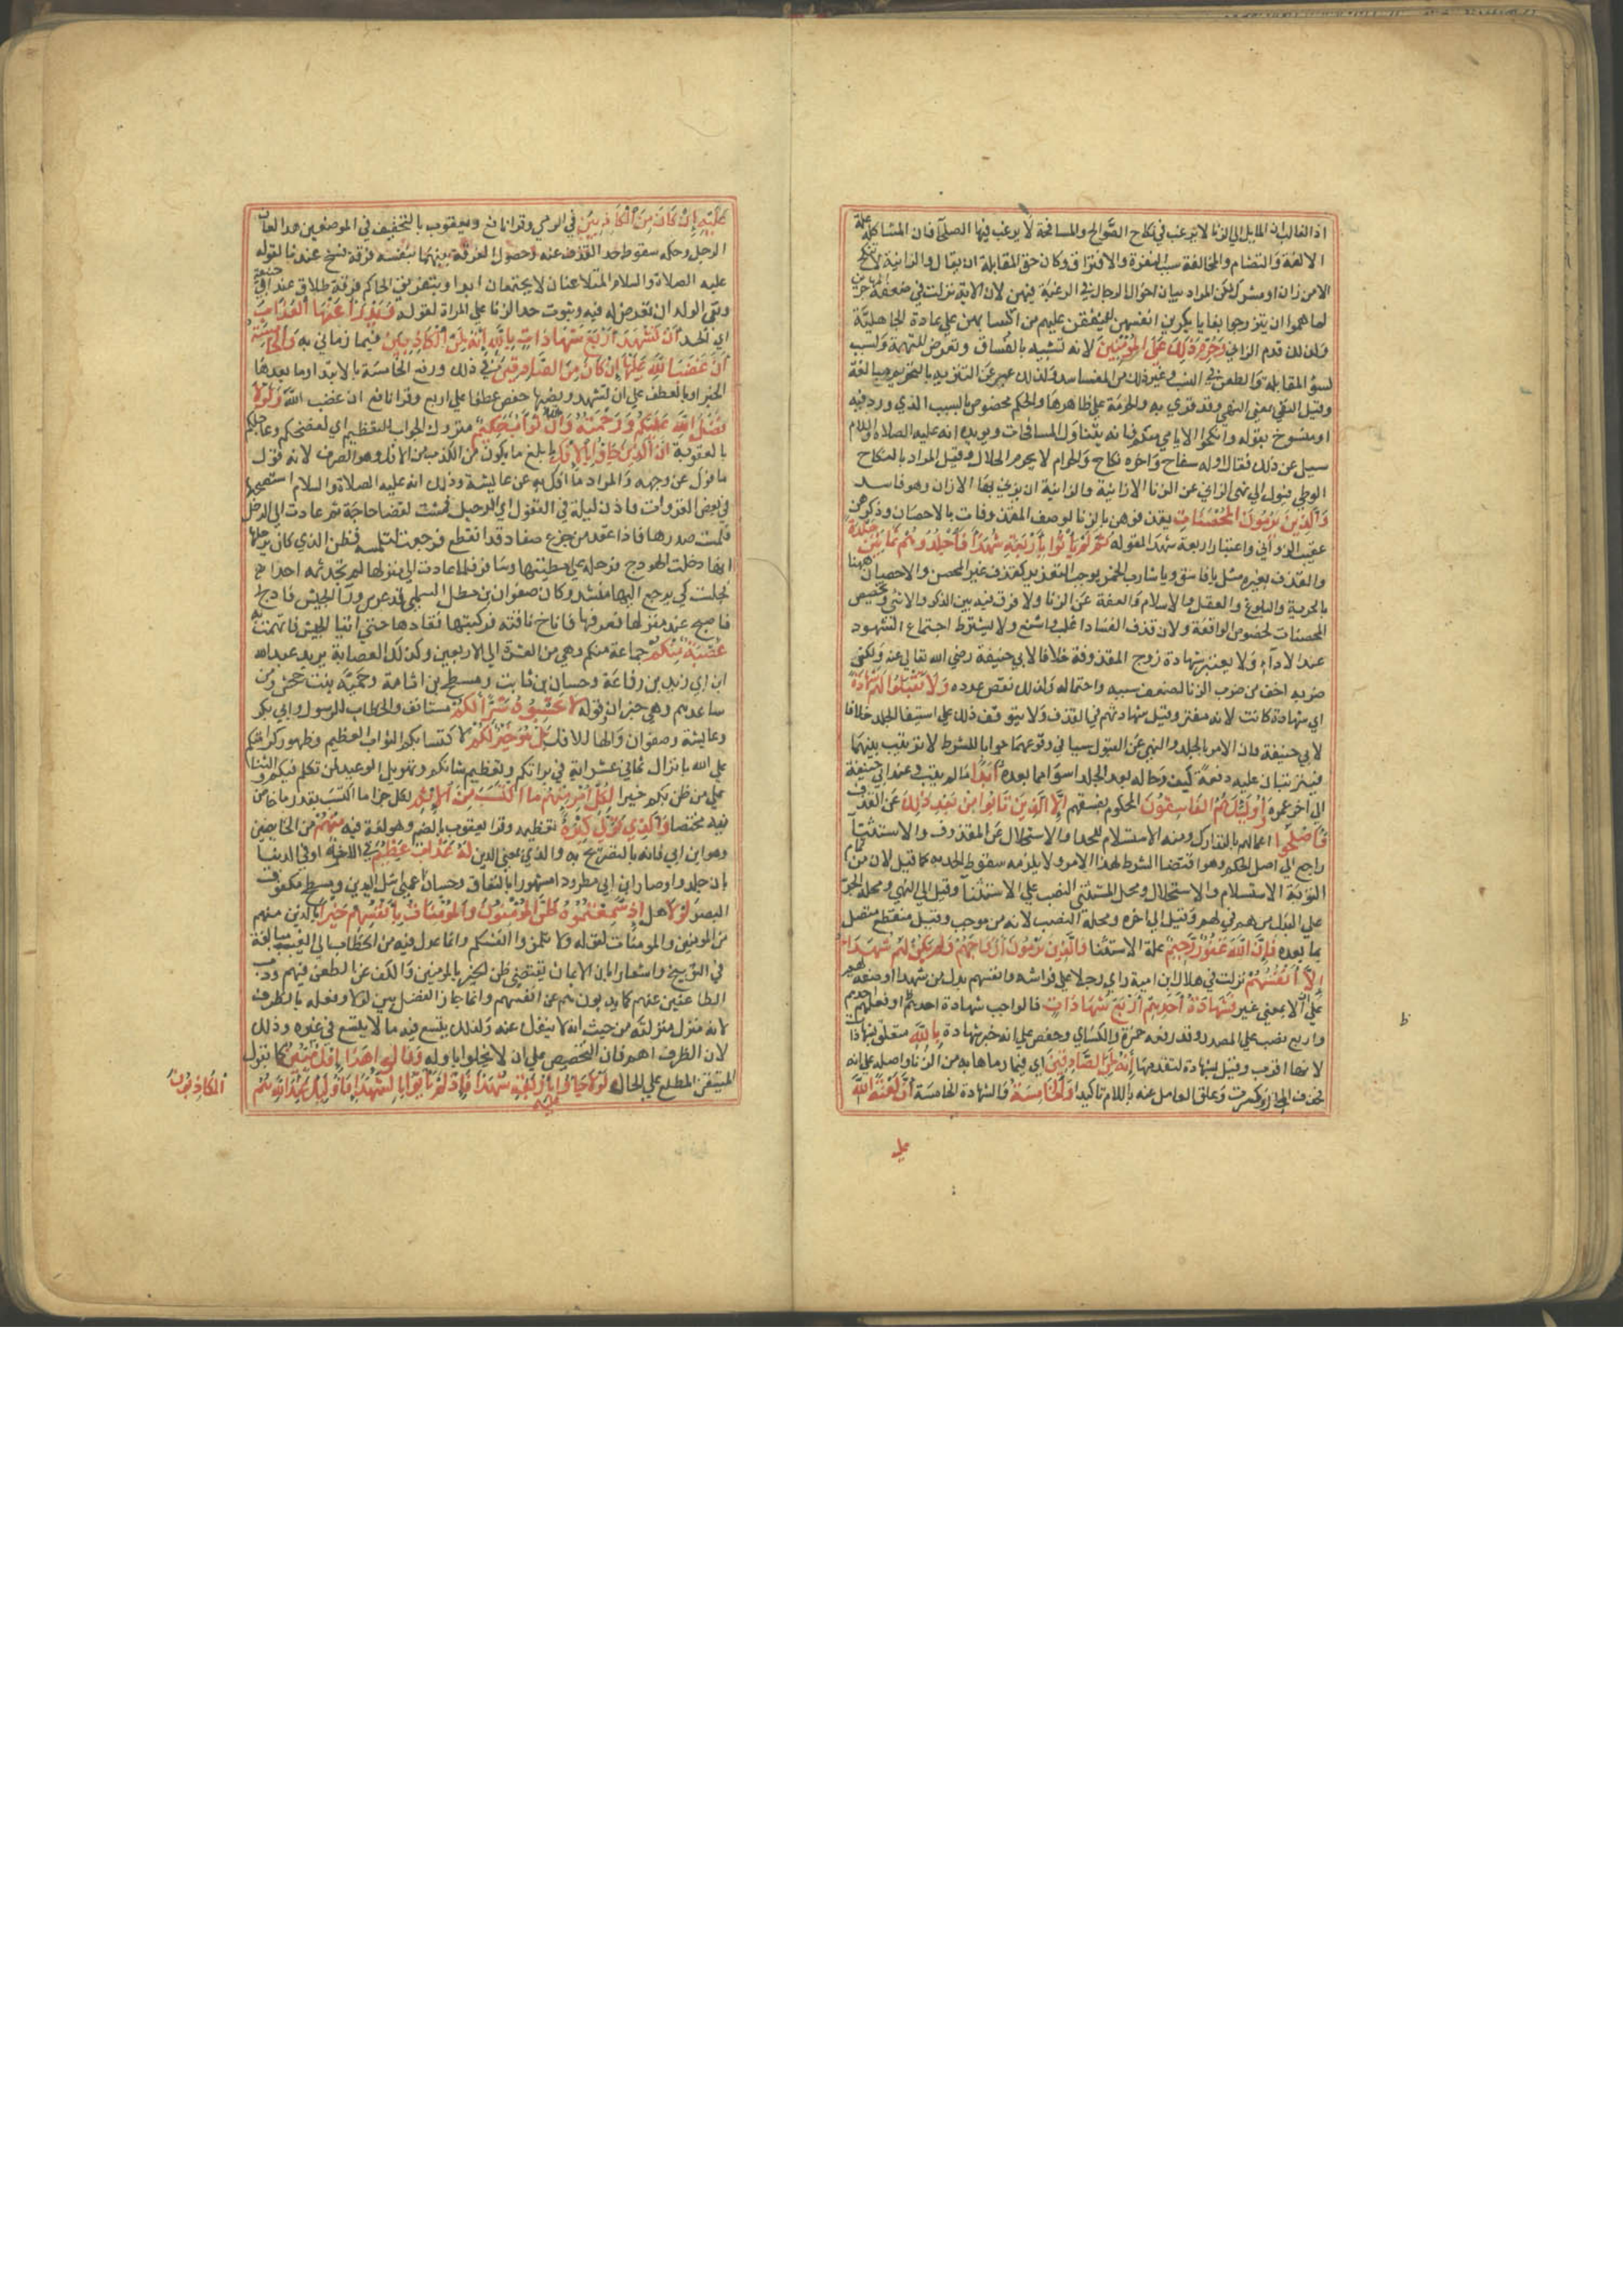 اذ الغالب ان المايل الي الزنا لا يرغب في نكاح الصوالح والمسافحة لا يرغب فيها الصلحآ فان المشاكلة علة
الالفة والتضام والمخالفة سبب النفرة والافتراق وكان حق المقابلة ان يقال والزانية لا تنكح
الا من زان او مشرك لكن المراد بيان احوال الرجال في الرغبة فيهن لان الاية نزلت في ضعفة المهاجرين
لما هموا ان يتزوجوا بغايا يكرين انفسهن لينفقن عليهم من اكسابهن علي عادة الجاهلية
ولذلك قدم الزاني وَحُرِّمَ ذَلِكَ عَلَى الْمُؤْمِنِينَ لانه تشبيه بالفساق وتعرض للتهمة وتسبب
لسؤ المقابلة والطعن في النسب وغير ذلك من المفاسد ولذلك عبر عن التنزيه بالتحريم مبالغة
وقيل النفي بمعني النهي وقد قري به والحرمة علي ظاهرها والحكم مخصوص بالسبب الذي ورد فيه
او منسوخ بقوله وانكحوا الايامي منكم فانه يتناول المسافحات ويويده انه عليه الصلاة والسلام
سيل عن ذلك فقال اوله سفاح واخره نكاح والحرام لا يحرم الحلال وقيل المراد بالنكاح
الوطي فيول الي نهي الزاني عن الزنا الا بزانية والزانية ان يزني بها الا زان وهو فاسد
وَالَّذِينَ يَرْمُونَ الْمُحْصَنَاتِ يقذفوهن بالزنا لوصف المقذوفات بالاحصان وذكرهن
عقيب الزواني واعتبار اربعة شهدا لقوله ثُمَّ لَمْ يَأْتُوا بِأَرْبَعَةِ شُهَدَآءَ فَاجْلِدُوهُمْ ثَمَانِينَ جَلْدَةً
والقذف بغيره مثل يا فاسق ويا شارب الخمر يوجب التعزير كقذف غير المحصن والاحصان ههنا
بالحرية والبلوغ والعقل والاسلام والعفة عن الزنا ولا فرق فيه بين الذكر والانثي وتخصيص
المحصنات لخصوص الواقعة ولان قذف النسا اغلب واشنع ولا يشترط اجتماع الشهود
عند الادآء ولا يعتبر شهادة زوج المقذوفة خلافا لابي حنيفة رضي الله تعالي عنه وليكن
ضربه اخف من ضرب الزنا لضعف سببه واحتماله ولذلك نقص عدده وَلَا تَقْبَلُوا لَهُمْ شَهَادَةً
اي شهادة كانت لانه مفتر وقيل شهادتهم في القذف ولا يتوقف ذلك علي استيفا الجلد خلافا
لابي حنيفة فان الامر بالجلد والنهي عن القبول سيان في وقوعهما جوابا للشرط لا ترتيب بينهما
فيترتبان عليه دفعة كيف وحاله بعد الجلد اسوا مما بعده أَبَدًا ما لم يتب وعند ابي حنيفة
الي اخر عمره وَأُولَئِكَ هُمُ الْفَاسِقُونَ المحكوم بفسقهم إِلَّا الَّذِينَ تَابُوا مِنْ بَعْدِ ذَلِكَ عن القذف
وَأَصْلَحُوا اعمالهم بالتدارك ومنه الاستسلام للحد او الاستحلال عن المقذوف والاستثنا
راجع الي اصل الحكم وهو اقتضا الشرط لهذا الامر ولا يلزمه سقوط الحد به كما قيل لان من تمام
التوبة الاستسلام والاستحلال ومحل المستثني النصب علي الاستثنا وقيل الي النهي ومحله الجر
علي البدل من هم في لهم وقيل الي اخره ومحله النصب لانه من موجب وقيل منقطع متصل
بما بعده فَإِنَّ اللهَ غَفُورٌ رَحِيمٌ علة الاستثنا وَالَّذِينَ يَرْمُونَ أَزْوَاجَهُمْ وَلَمْ يَكُنْ لَهُمْ شُهَدَاءُ
إِلَّا أَنْفُسُهُمْ نزلت في هلال ابن امية راي رجلا علي فراشه وانفسهم بدل من شهدا او صفة لهم
علي الا بمعني غير فَشَهَادَةُ أَحَدِهِمْ أَرْبَعُ شَهَادَاتٍ فالواجب شهادة احدهم او فعليهم
واربع نصب علي المصدر وقد رفعه حمزة والكساي وحفص علي انه خبر شهادة بِاللهِ متعلق بشهادات
لانها اقرب وقيل بشهادة لتقدمها إِنَّهُ لَمِنَ الصَّادِقِينَ اي فيما رماها به من الزنا واصله علي انه
فحذف الجار وكسرت وعلق العامل عنه باللام تاكيدا وَالْخَامِسَةُ والشهادة الخامسة أَنَّ لَعْنَةَ اللهِ
علي
ط
عَلَيْهِ إِنْ كَانَ مِنَ الْكَاذِبِينَ في الرمي وقرا نافع ويعقوب بالتخفيف في الموضعين هذا لعان
الرجل وحكمه سقوط حد القذف عنه وحصول الفرقة بينهما بنفسه فرقة فسخ عندنا لقوله
عليه الصلاة والسلام المتلاعنان لا يجتمعان ابدا وبتفريق الحاكم فرقة طلاق عند ابي حنيفة
ونفي الولد ان تعرض له فيه وثبوت حد الزنا علي المراة لقوله وَيَدْرَؤُا عَنْهَا الْعَذَابَ
اي الحد أَنْ تَشْهَدَ أَرْبَعَ شَهَادَاتٍ بِاللهِ إِنَّهُ لَمِنَ الْكَاذِبِينَ فيما رماني به وَالْخَامِسَةَ
أَنَّ غَضَبَ اللهِ عَلَيْهَا إِنْ كَانَ مِنَ الصَّادِقِينَ في ذلك ورفع الخامسة بالابتدا وما بعدها
الخبر او بالعطف علي ان تشهد ونصبها حفص عطفا علي اربع وقرا نافع ان غضب الله وَلَوْلَا
فَضْلُ اللهِ عَلَيْكُمْ وَرَحْمَتُهُ وَأَنَّ اللهَ تَوَّابٌ حَكِيمٌ متروك الجواب للتعظيم اي لفضحكم وعاجلكم
بالعقوبة إِنَّ الَّذِينَ جَاؤُا بِالْإِفْكِ بابلغ ما يكون من الكذب من الافك وهو الصرف لانه قول
مافوك عن وجهه والمراد ما افك به عن عايشة وذلك انه عليه الصلاة والسلام استصحبها
في بعض الغزوات فاذن ليلة في القفول اي بالرحيل فمشت لقضا حاجة ثم عادت الي الرحل
فلمست صدرها فاذا عقد من جزع ضفار قد انقطع فرجعت لتلتمسه فظن الذي كان يرحلها
انها دخلت الهودج فرحله علي مطيتها وسار فلما عادت الي منزلها لم تجد ثمه احدا
فجلست كي يرجع اليها منشد وكان صفوان بن معطل السلمي قد عرس ورآ الجيش فادلج
فاصبح عند منزلها فعرفها فاناخ ناقته فركبتها فقادها حتي اتيا الجيش فاتهمت به
عُصْبَةٌ مِنْكُمْ جماعة منكم وهي من العشرة الي الاربعين وكذلك العصابة يريد عبد الله
ابن ابي زيد بن رفاعة وحسان بن ثابت ومسطح بن اثاثة وحمنة بنت جحش ومن
ساعدهم وهي خبر ان وقوله لَا تَحْسَبُوهُ شَرًّا لَكُمْ مستانف والخطاب للرسول وابي بكر
وعايشة وصفوان والها للافك بَلْ هُوَ خَيْرٌ لَكُمْ لاكتسابكم الثواب العظيم وظهور كرامتكم
علي الله بانزال ثماني عشر اية في براتكم وتعظيم شانكم وتهويل الوعيد لمن تكلم فيكم والثنا
علي من ظن بكم خيرا لِكُلِّ امْرِئٍ مِنْهُمْ مَا اكْتَسَبَ مِنَ الْإِثْمِ لكل جزا ما اكتسب بقدر ما خاض
فيه مختصا وَالَّذِي تَوَلَّى كِبْرَهُ تعظيمه وقرا يعقوب بالضم وهو لغة فيه مِنْهُمْ من الخايضين
وهو ابن ابي فانه بالتصريح به والذي بمعني الذين لَهُ عَذَابٌ عَظِيمٌ في الاخرة او في الدنيا
بان جلدوا وصار ابن ابي مطرودا مشهورا بالنفاق وحسان اعمي اشل اليدين ومسطح مكفوف
البصر لَوْلَا هلا إِذْ سَمِعْتُمُوهُ ظَنَّ الْمُؤْمِنُونَ وَالْمُؤْمِنَاتُ بِأَنْفُسِهِمْ خَيْرًا بالذين منهم
من المومنين والمومنات لقوله ولا تلمزوا انفسكم وانما عدل فيه من الخطاب الي الغيبة مبالغة
في التوبيخ واشعارا بان الايمان يقتضي ظن الخير بالمومنين والكف عن الطعن فيهم وذب
الطاعنين عنهم كما يذبون هم عن انفسهم وانما جاز الفصل بين لولا وفعله بالظرف
لانه منزل منزلته من حيث انه لا ينفك عنه ولذلك يتسع فيه ما لا يتسع في غيره وذلك
لان الظرف اهم فان التخصيص علي ان لا يخلوا باوله وَقَالُوا هَذَا إِفْكٌ مُبِينٌ كما يقول
المتيقن المطلع علي الحال لَوْلَا جَاؤُا عَلَيْهِ بِأَرْبَعَةِ شُهَدَاءَ فَإِذْ لَمْ يَأْتُوا بِالشُّهَدَاءِ فَأُولَئِكَ عِنْدَ اللهِ هُمُ
الْكَاذِبُونَ